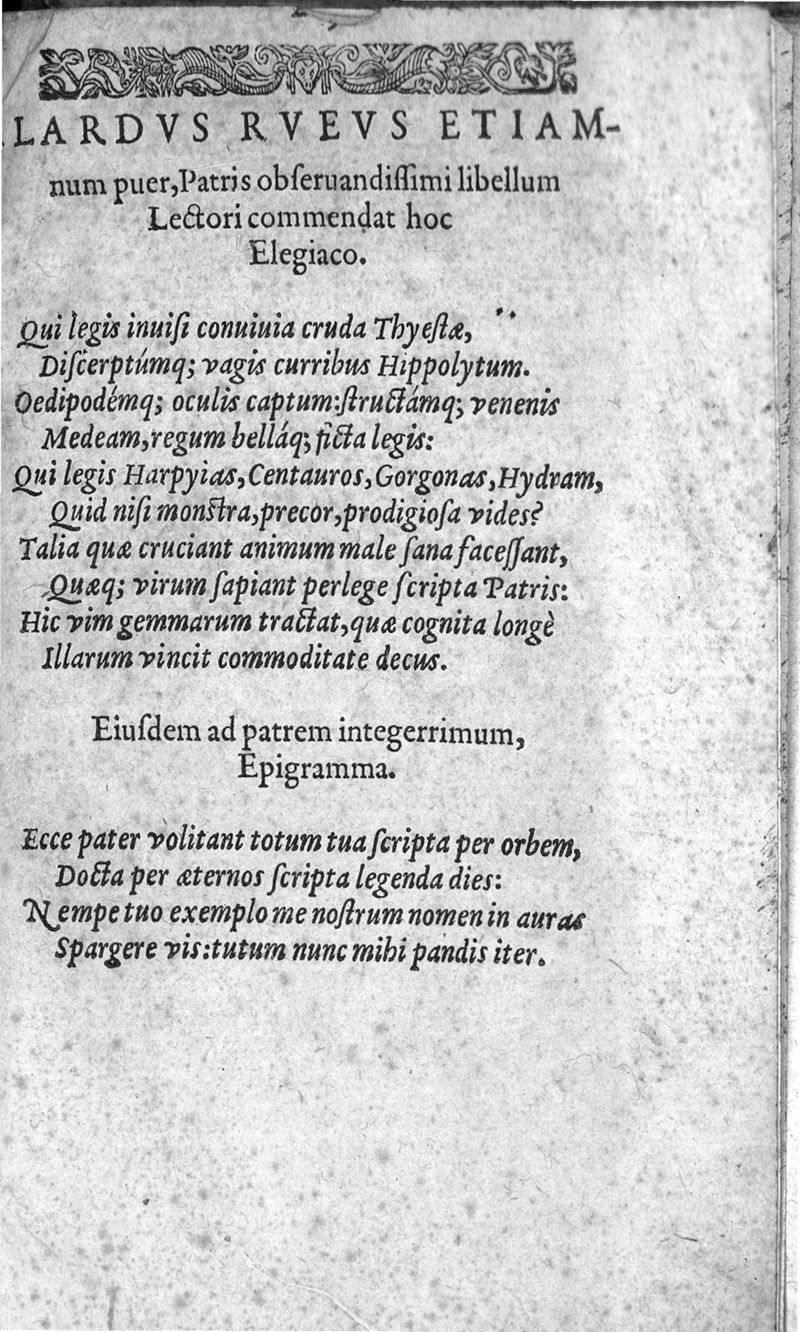 LARDVS RVEVS ETIAM-
num puer,Patris obſeruandiſſimi libellum
Lectori commendat hoc
Elegiaco.
Qui legis inuiſi conuiuia cruda Thyeſtæ,
Diſcerptúmq; vagis curribus Hippolytum.
Oedipodémq; oculis captum:ſtructámq; venenis
Medeam,regum belláq; ficta legis:
Qui legis Harpyias,Centauros,Gorgonas,Hydram,
Quid niſi monſtra,precor,prodigioſa vides?
Talia quæ cruciant animum male ſana faceſſant,
Quæq; virum ſapiant perlege ſcripta Patris:
Hic vim gemmarum tractat,quæ cognita longè
Illarum vincit commoditate decus.
Eiuſdem ad patrem integerrimum,
Epigramma.
Ecce pater volitant totum tua ſcripta per orbem,
Docta per æternos ſcripta legenda dies:
Nempe tuo exemplo me noſtrum nomen in auras
Spargere vis:tutum nunc mihi pandis iter.